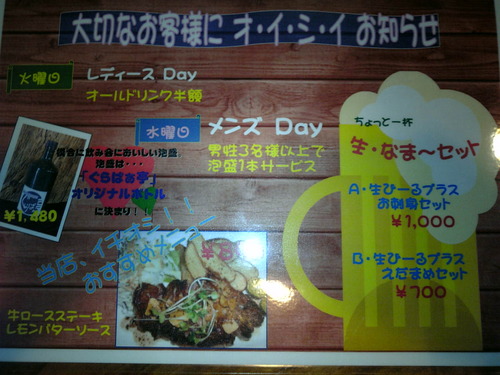 大切なお客様に オ・イ・シ・イ お知らせ
火曜日
レディース Day
オールドリンク半額
水曜日
メンズ Day
男性3名様以上で
泡盛1本サービス
宴会に飲み会においしい泡盛
泡盛は・・・
「ぐらばぁ亭」
オリジナルボトル
に決まり!!
¥1,480
当店、イチオシ!!
おすすめメニュー
牛ロースステーキ
レモンバターソース
ちょっと一杯
生・なま~セット
A・生びーるプラス
お刺身セット
¥1,000
B・生びーるプラス
えだまめセット
¥700